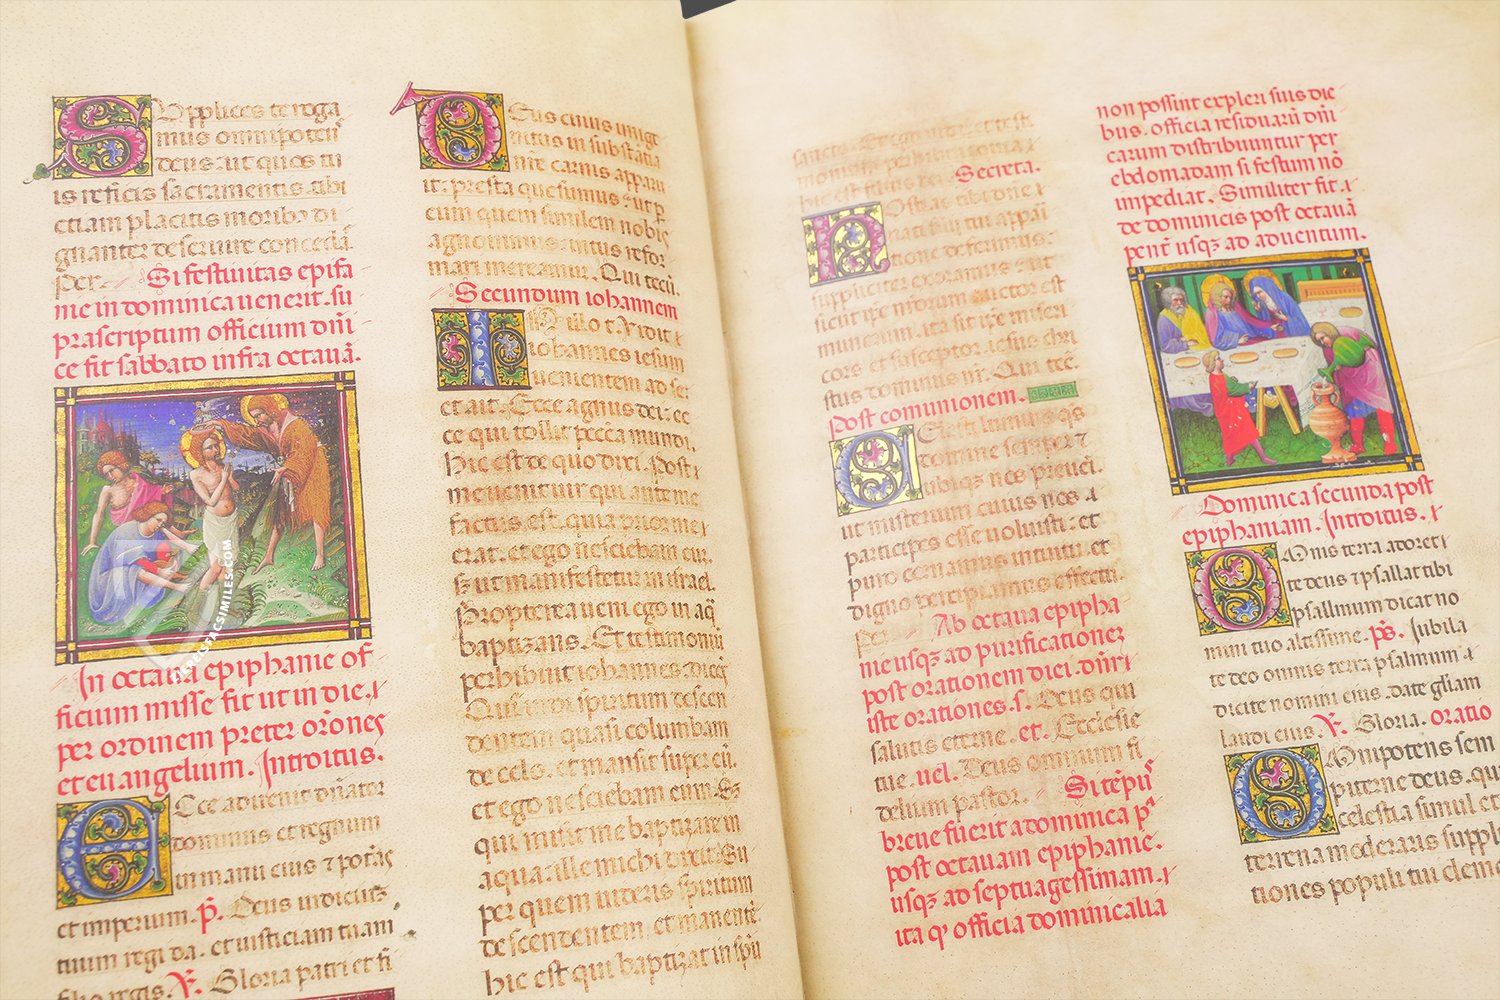 Supplices te roga
mus omnipotens
deus: ut quos tu
is reficis sacramentis. tibi
etiam placitis moribus di
gnanter deseruire concedas.
Per. Si festiuitas epifa
nie in dominica uenerit. su
prascriptum officium dni
ce fit sabbato infra octauā.
In octaua epiphanie of
ficium misse fit ut in die.
per ordinem preter orōnes
et euangelium. Introitus.
Ecce aduenit dn̄ator
dominus et regnum
in manu eius ⁊ potās
et imperium. p̄. Deus iudiciū
tuum regi da. et iusticiam tuam
filio regis. ℣. Gloria patri et fi
Deus cuius unige
nitus in substātia
nre carnis apparu
it: presta quesumus: ut p̄
eum quem similem nobis
agnouimus: intus refor
mari mereamur. Qui tecū.
Secundum iohannem
In illo t. Vidit
iohannes iesum
uenientem ad se:
et ait. Ecce agnus dei: ec
ce qui tollit peccā mundi.
Hic est de quo dixi. Post
me uenit uir qui ante me
factus est. quia prior me
erat. et ego nesciebam eū.
sz ut manifestetur in israel.
Propterea ueni ego in aq̄
baptizans. Et testimoniū
perhibuit iohannes: dicēs
Quia uidi spiritum descen
dentem quasi columbam
de celo. et mansit super eū.
et ego nesciebam eum. Sz
qui misit me baptizare in
aqua: ille michi dixit: Sup
per quem uideris spiritum
descendentem et manentē:
hic est qui baptizat in spū
sancto. Et ego uidi. et test
monium perhibui quia
hic est filius dei. Secreta.
Hostias tibi dne
nati filii tui appari
tione deferimus:
suppliciter exorantes: ut
sicut ipse nrorum auctor est
munerum. ita sit ipse miseri
cors et susceptor. iesus chri
stus dominus nr. Qui tec.
Post comunionem.
Celesti lumine qs
domine semper ⁊
ubiqz nos preueni.
ut misterium cuius nos
participes esse uoluisti: et
puro cernamus intuitu. et
digno percipiamus effectu.
Per Ab octaua epipha
nie usqz ad purificationez
post orationem diei. dnr
iste orationes. s. Deus qui
salutis eterne. et. Ecclesie
tue. uel. Deus omnium fi
delium pastor. Si tēpus
breue fuerit a dominica p^a
post octauam epiphanie.
usqz ad septuagessimam.
ita q officia dominicalia
non possint expleri suis die
bus. officia residuarū dn̄i
carum distribuuntur per
ebdomadam si festum nō
impediat. Similiter fit.
de dominicis post octauā
pent̄ usqz ad aduentum.
Dominica secunda post
epiphaniam. Introitus.
Omnis terra adoret
te deus ⁊ psallat tibi
psallmum dicat no
mini tuo altissime. ps. Iubila
te deo omnis terra psalmum
dicite nomini eius. date gl̄iam
laudi eius. ℣. Gloria. oratio
Omnipotens sem
piterne deus. qui
celestia simul et
terrena moderaris suppli
tiones populi tui cleme
FACSIMILES.COM